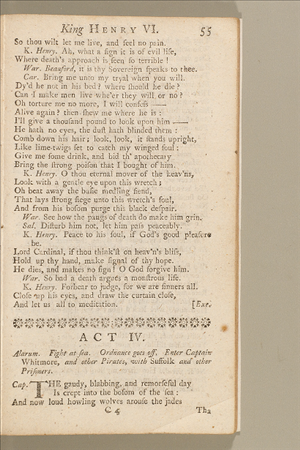 King HENRY VI. 55
So thou wilt let me live, and feel no pain.
K. Henry. Ah, what a sign it is of evil life,
Where death's approach is seen so terrible!
War. Beauford, it is thy Sovereign speaks to thee.
Car. Bring me unto my tryal when you will.
Dy'd he not in his bed? where should he die?
Can I make men live whe'er they will or no?
Oh torture me no more, I will confess —
Alive again? then shew me where he is:
I'll give a thousand pound to look upon him —
He hath no eyes, the dust hath blinded them:
Comb down his hair; look, look, it stands upright,
Like lime-twigs set to catch my winged soul:
Give me some drink, and bid th' apothecary
Bring the strong poison that I bought of him.
K. Henry. O thou eternal mover of the heav'ns,
Look with a gentle eye upon this wretch;
Oh beat away the busie medling fiend,
That lays strong siege unto this wretch's soul,
And from his bosom purge this black despair.
War. See how the pangs of death do make him grin.
Sal. Disturb him not, let him pass peaceably.
K. Henry. Peace to his soul, if God's good pleasure
be.
Lord Cardinal, if thou think'st on heav'n's bliss,
Hold up thy hand, make signal of thy hope.
He dies, and makes no sign! O God forgive him.
War. So bad a death argues a monstrous life.
K. Henry. Forbear to judge, for we are sinners all.
Close up his eyes, and draw the curtain close,
And let us all to meditation. [Exe.
ACT IV.
Alarum. Fight at sea. Ordnance goes off. Enter Captain
Whitmore, and other Pirates, with Suffolk and other
Prisoners.
Cap. THE gaudy, blabbing, and remorseful day
Is crept into the bosom of the sea:
And now loud howling wolves arouse the jades
C 4 Tha